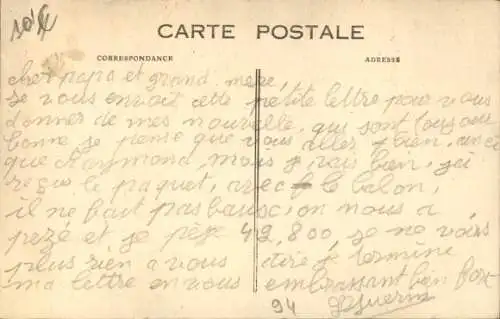 CARTE POSTALE
CORRESPONDANCE
ADRESSE
cher papa et grand mere,
je vous envoit cette petite lettre pour vous
donner de mes nouvelle, qui sont toujour
bonne je pense que vous aller bien,
que Raymond, mois je vais bien, j'ai
reçus le paquet, avec le balon,
il ne fait pas beau, on nous a
pezé et je pèse 49,800, je ne vois
plus rien a vous dire je termine
ma lettre en vous embrassant bien fort
94